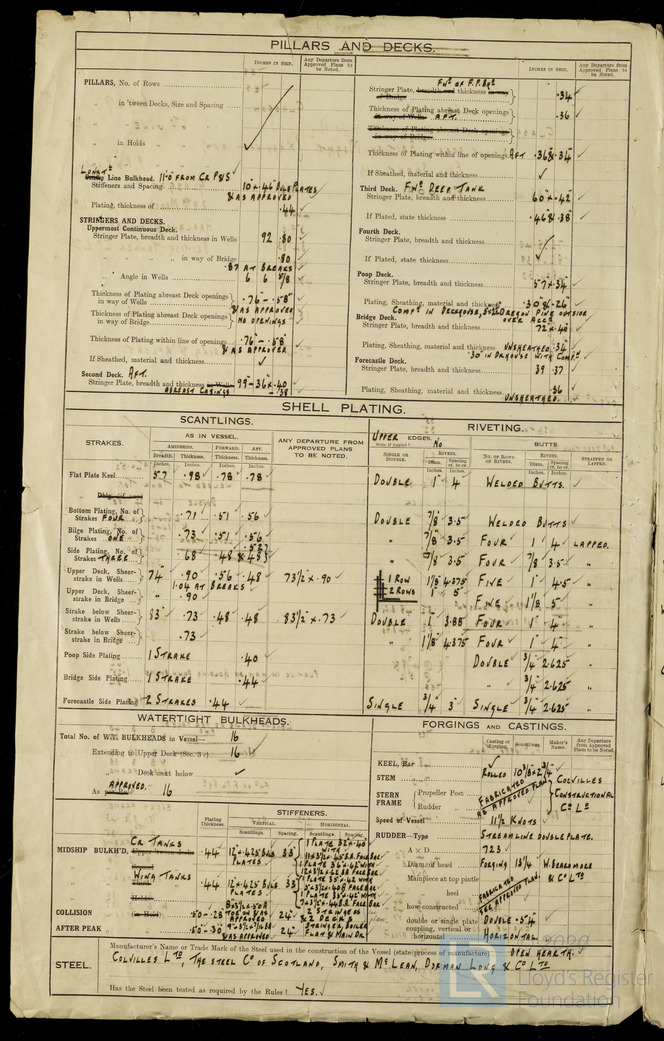 PILLARS AND DECKS.
INCHES IN SHIP.
Any Departure from Approved Plans to be Noted.
PILLARS, No. of Rows
in 'tween Decks, Size and Spacing
in Holds
LONGL
Line Bulkhead. 11'0" FROM CR P&S
Stiffeners and Spacing 10 × .46 BULB PLATES
& AS APPROVED
Plating, thickness of .44
STRINGERS AND DECKS.
Uppermost Continuous Deck.
Stringer Plate, breadth and thickness in Wells 92 .80
in way of Bridge .80
.87 AT BREAKS
Angle in Wells 6 6 7/8
Thickness of Plating abreast Deck openings in way of Wells .76 - .58
& AS APPROVED
Thickness of Plating abreast Deck openings in way of Bridge NO OPENINGS
Thickness of Plating within line of openings .76 - .58
& AS APPROVED
If Sheathed, material and thickness
Second Deck. AFT.
Stringer Plate, breadth and thickness in Wells 99 - 36 × .40
ABREAST CASINGS .38
INCHES IN SHIP.
Any Departure from Approved Plans to be Noted.
Stringer Plate, breadth and thickness in way of Bridge .34
Thickness of Plating abreast Deck openings in way of Wells AFT. .36
Thickness of Plating abreast Deck openings in way of Bridge
Thickness of Plating within line of openings AFT .36 & .34
If Sheathed, material and thickness
Third Deck. FWD DEEP TANK
Stringer Plate, breadth and thickness 60 × .42
If Plated, state thickness .46 & .38
Fourth Deck.
Stringer Plate, breadth and thickness
If Plated, state thickness
Poop Deck.
Stringer Plate, breadth and thickness 57 × .34
Plating, Sheathing, material and thickness .30 & .26
COMPN IN DECKHOUSE, 5×2½ OREGON PINE OUTSIDE
OVER ACCN.
Bridge Deck.
Stringer Plate, breadth and thickness 72 × .40
Plating, Sheathing, material and thickness UNSHEATHED .34
.30 IN DKHOUSE WITH COMPN
Forecastle Deck.
Stringer Plate, breadth and thickness 39 .37
Plating, Sheathing, material and thickness .36
UNSHEATHED.
SHELL PLATING.
SCANTLINGS.
RIVETING.
STRAKES.
AS IN VESSEL.
ANY DEPARTURE FROM APPROVED PLANS TO BE NOTED.
AMIDSHIPS. FORWARD. AFT.
Breadth. Thickness. Thickness. Thickness.
Inches. Inches. Inches. Inches.
UPPER EDGES.
State if joggled? No
BUTTS.
SINGLE OR DOUBLE.
RIVETS.
Diam. Spacing cr. to cr.
NO. OF ROWS OF RIVETS.
RIVETS.
Diam. Spacing cr. to cr.
STRAPPED OR LAPPED.
Flat Plate Keel 57 .98 .78 .78 DOUBLE 1" 4 WELDED BUTTS.
Dblg. (if any)
Bottom Plating, No. of Strakes FOUR .71 .51 .56 DOUBLE 7/8 3.5 WELDED BUTTS
Bilge Plating, No. of Strakes ONE .73 .51 .56 " 7/8 3.5 FOUR 1" 4 LAPPED.
Side Plating, No. of Strakes THREE .68 .48 .52 & .48 " 7/8 3.5 FOUR 7/8 3.5 "
Upper Deck, Sheer-strake in Wells 74 .90 .56 .48 73½ × .90 1 ROW 1⅛ 4.375 FIVE 1" 4.5 "
1.04 AT BREAKS
Upper Deck, Sheer-strake in Bridge .90 2 ROWS 1" 5 FIVE 1⅛ 5 "
Strake below Sheer-strake in Wells 83 .73 .48 .48 83½ × .73 DOUBLE 1 3.88 FOUR 1" 4 "
Strake below Sheer-strake in Bridge .73 " 1⅛ 4.375 FOUR 1" 4 "
Poop Side Plating 1 STRAKE .40 DOUBLE ¾ 2.625 "
Bridge Side Plating 1 STRAKE .44 " ¾ 2.625 "
Forecastle Side Plating 2 STRAKES .44 SINGLE ¾ 3 SINGLE ¾ 2.625 "
WATERTIGHT BULKHEADS.
Total No. of W.T. BULKHEADS in Vessel 16
Extending to Upper Deck (Sec. 3 c) 16
Deck next below
As APPROVED. 16
Plating Thickness.
STIFFENERS.
VERTICAL. HORIZONTAL.
Scantlings. Spacing. Scantlings. Spacing.
MIDSHIP BULKH'D, CR TANKS .44 12 × .425 BULB PLATES 33
WING TANKS .44 12 × .425 BULB PLATES 33
COLLISION (in Hold) .50 - .28 24
2 STRINGERS & 2 DECKS
AFTER PEAK .50 - .30 & AS APPROVED 24
STRINGER, BOILER FLAT & MAIN DK
FORGINGS AND CASTINGS.
Casting or Forging. Scantlings. Maker's Name. Any Departure from Approved Plans to be Noted.
KEEL, Bar
STEM ROLLED 10¾ × 2¾
STERN FRAME
Propeller Post
Rudder
FABRICATED
AS APPROVED PLAN
COLVILLES
CONSTRUCTIONAL
CO LD
Speed of Vessel 11½ KNOTS
RUDDER—Type STREAMLINE DOUBLE PLATE.
A × D 723
Diam. of head FORGING 13¼ W. BEARDMORE & CO LD
Mainpiece at top pintle
heel
FABRICATED
SEE APPROVED PLAN.
how constructed
double or single plate DOUBLE .54
coupling, vertical or horizontal HORIZONTAL
STEEL.
Manufacturer's Name or Trade Mark of the Steel used in the construction of the Vessel (state process of manufacture) OPEN HEARTH.
COLVILLES LTD, THE STEEL CO OF SCOTLAND, SMITH & McLEAN, DORMAN LONG & CO LTD
Has the Steel been tested as required by the Rules? YES.
2020
LR
Lloyd's Register
Foundation